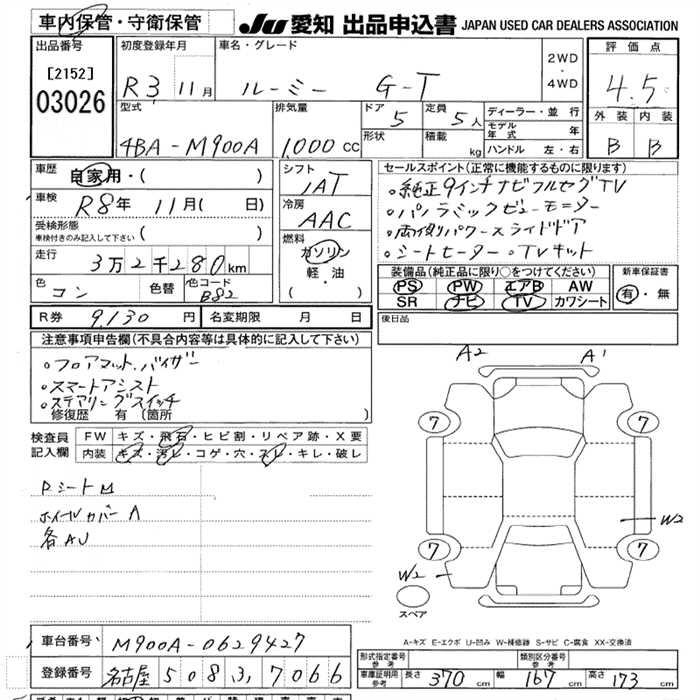 車内保管・守衛保管
JU 愛知 出品申込書 JAPAN USED CAR DEALERS ASSOCIATION
出品番号
[2152]
03026
初度登録年月
R3 11月
車名・グレード
ルーミー G-T
2WD
・
4WD
評価点
4.5
外装 内装
B B
型式
4BA-M900A
排気量
1,000 CC
ドア
5
定員
5人
形状
積載
kg
ディーラー・並行
モデル年式 年
ハンドル 左・右
車歴
自家用・( )
車検
R8年 11月( 日)
受検形態
車検付きのみ記入して下さい( )
走行
3万2千280km
色
コン
色替
色コード
B82
シフト
IAT
冷房
AAC
燃料
ガソリン
軽・油
( )
セールスポイント(正常に機能するものに限ります)
。純正9インチナビフルセグTV
。パノラミックビューモニター
。両側パワースライドドア
。シートヒーター。TVキット
装備品(純正品に限り○をつけてください)
PS PW エアB AW
SR ナビ TV カワシート
新車保証書
有・無
R券 9,130円
名変期限 月 日
後日品
注意事項申告欄(不具合内容等は具体的に記入して下さい)
。フロアマット.バイザー
。スマートアシスト
。ステアリングスイッチ
修復歴 有 (箇所 )
検査員
記入欄
FW キズ・飛石・ヒビ割・リペア跡・X要
内装 キズ・汚レ・コゲ・穴・スレ・キレ・破レ
PシートM
ホイールカバーA
各AU
A2 A1
7 7
W2
7 7
W2
スペア
A-キズ E-エクボ U-凹み W-補修跡 S-サビ C-腐食 XX-交換済
車台番号 M900A-0629427
登録番号 名古屋 508 る 7066
形式指定番号
参考
類別区分番号
参考
車庫証明用
参考
長さ 370 cm 幅 167 cm 高さ 173 cm